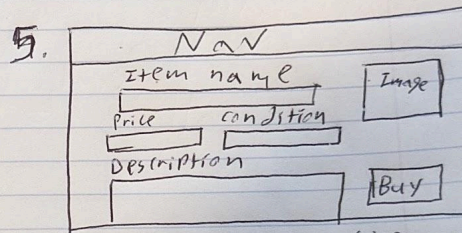 5.
NaV
Item name
Image
Price condition
Description
Buy